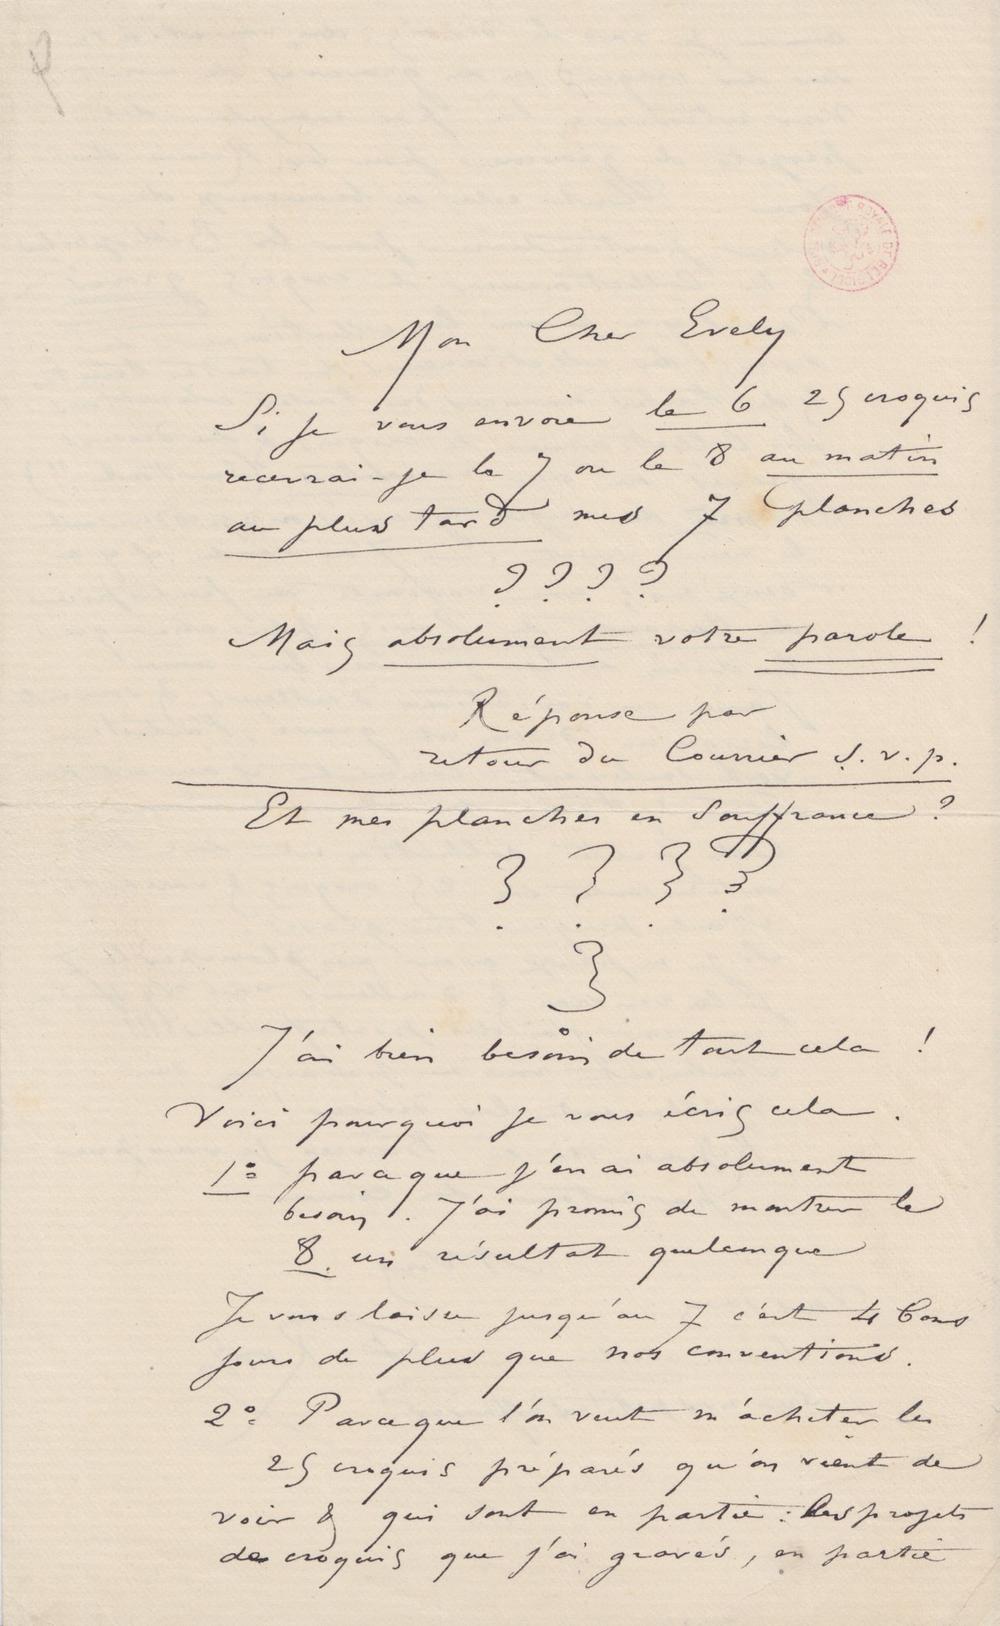 Mon Cher Evely
Si je vous envoie le 6 25 croquis
recevrai-je le 7 ou le 8 au matin
au plus tard mes 7 planches
? ? ? ?
Mais absolument votre parole !
Réponse par
retour du Courrier S.v.p.
Et mes planches en Souffrance ?
? ? ? ?
?
J'ai bien besoin de tout cela !
Voici pourquoi je vous écris cela.
1° parceque j'en ai absolument
besoin. J'ai promis de montrer le
8 un résultat quelconque
Je vous laisse jusqu'au 7 c'est 4 bons
jours de plus que nos conventions.
2° Parceque l'on veut m'acheter les
25 croquis préparés qu'on vient de
voir & qui sont en partie : les projets
de croquis que j'ai gravés, en partie